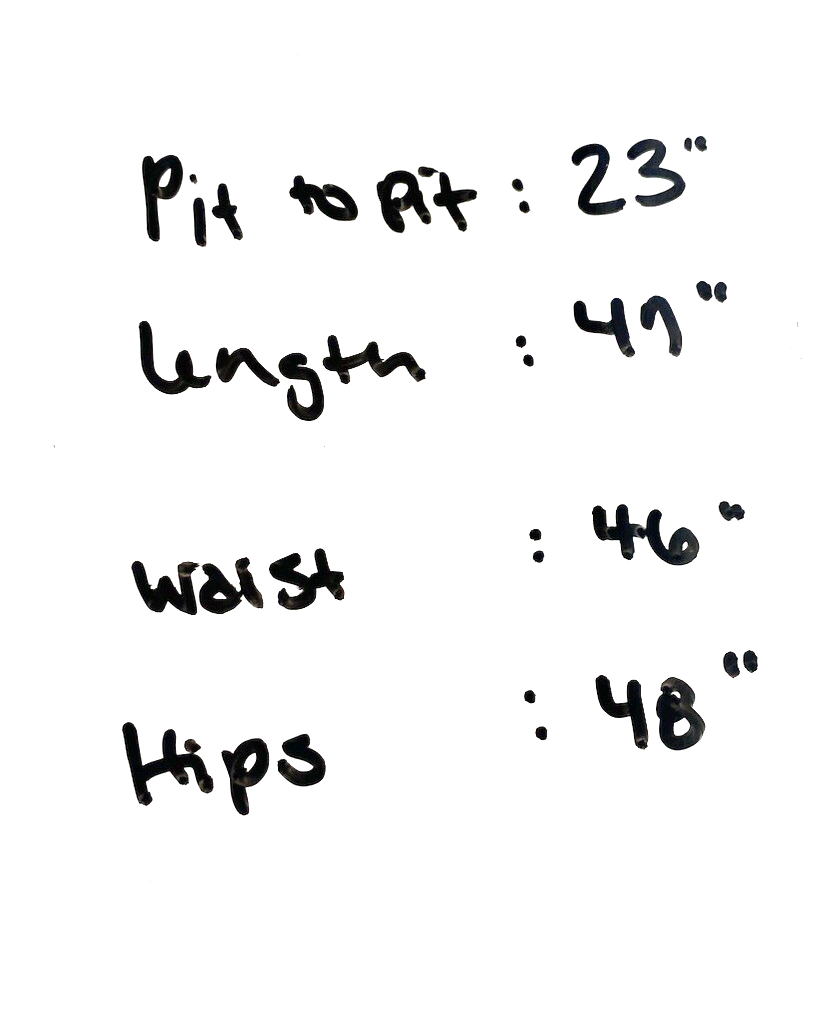 Pit to Pit : 23"
Length : 47"
Waist : 46"
Hips : 48"